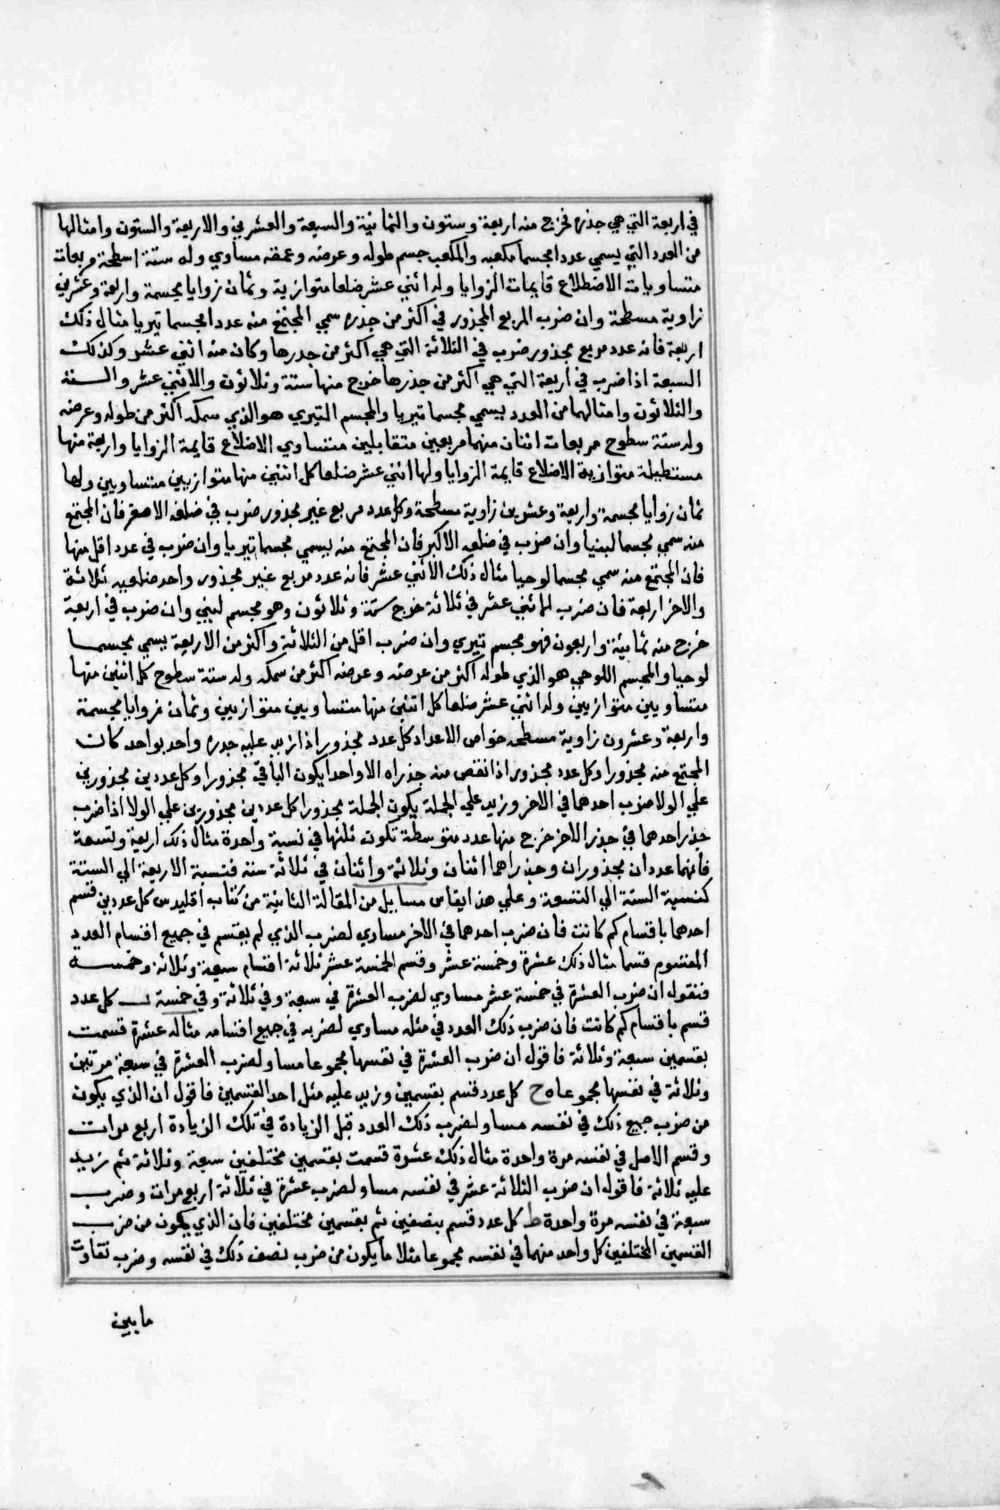 في اربعة التي هي جذره فخرج منه اربعة وستون والثمانية والسبعة والعشرين والاربعة والستون وامثالها
من العدد التي يسمي عددا مجسما مكعبا والمكعب جسم طوله وعرضه وعمقه مساوي وله ستة اسطحة مربعات
متساويات الاضطلاع قايمات الزوايا وله اثني عشر ضلعا متوازية وثمان زوايا مجسمة واربعة وعشرين
زاوية مسطحة وان ضرب المربع المجذور في اكثر من جذره سمي المجتمع منه عددا مجسما تيريا مثال ذلك
اربعة فانه عدد مربع مجذور ضرب في الثلاثة التي هي اكثر من جدرها وكان منه اثني عشر وكذلك
السبعة اذا ضرب في اربعة التي هي اكثر من جذرها خرج منها ستة وثلاثون والاثني عشر والستة
والثلاثون وامثالهما من العدد يسمي مجسما تيريا والمجسم التيري هو الذي سمكه اكثر من طوله وعرضه
وله ستة سطوح مربعات اثنان منهما مربعين متقابلين متساوي الاضلاع قايمة الزوايا واربعة منها
مستطيلة متوازية الاضلاع قايمة الزوايا ولها اثني عشر ضلعا كل اثنين منها متوازيين متساويين ولها
ثمان زوايا مجسمة واربعة وعشرين زاوية مسطحة وكل عدد مربع غير مجذور ضرب في ضلعه الاصغر فان المجتمع
منه سمي مجسما لبنيا وان ضرب في ضلعه الاكبر فان المجتمع منه يسمي مجسما تيريا وان ضرب في عدد اقل منها
فان المجتمع منه سمي مجسما لوحيا مثال ذلك الاثني عشر فانه عدد مربع غير مجذور واحد ضلعيه ثلاثة
والاخر اربعة فان ضرب الاثني عشر في ثلاثة خرج ستة وثلاثون وهو مجسم لبني وان ضرب في اربعة
خرج منه ثمانية واربعون فهو مجسم تيري وان ضرب اقل من الثلاثة واكثر من الاربعة يسمي مجسما
لوحيا والمجسم اللوحي هو الذي طوله اكثر من عرضه وعرضه اكثر من سمكه وله ستة سطوح كل اثنين منها
متساويين متوازيين وله اثني عشر ضلعا كل اثنين منها متساويين متوازيين وثمان زوايا مجسمة
واربعة وعشرون زاوية مسطحه خواص الاعداد كل عدد مجذور اذا زيد عليه جدره واحد بواحد كان
المجتمع منه مجذورا وكل عدد مجذور اذا نقص منه جذراه الا واحد يكون الباقي مجذورا وكل عددين مجذورين
علي الولا ضرب احدهما في الاخر وزيد علي الجملة يكون الجملة مجذورا كل عددين مجذورين علي الولا اذا ضرب
جذر احدهما في جذر الاخر خرج منها عدد متوسطة تكون ثلثها في نسبة واحدة مثال ذلك اربعة وتسعة
فانهما عددان مجذوران وجذراهما اثنان وثلاثة واثنان في ثلاثة ستة فنسبة الاربعة الي الستة
كنسبة الستة الي التسعة وعلي هذا يقاس مسايل من المقالة الثانية من كتاب اقليدس كل عددين قسم
احدهما باقسام كم كانت فان ضرب احدهما في الاخر مساوي لضرب الذي لم يقسم في جميع اقسام العدد
المقسوم قسما مثال ذلك عشرة وخمسة عشر وقسم الخمسة عشر ثلاثة اقسام سبعة وثلاثة وخمسة
فنقول ان ضرب العشرة في خمسة عشر مساوي لضرب العشرة في سبعة وفي ثلاثة وفي خمسة ب كل عدد
قسم باقسام كم كانت فان ضرب ذلك العدد في مثله مساوي لضربه في جميع اقسامه مثاله عشرة قسمت
بقسمين سبعة وثلاثة فاقول ان ضرب العشرة في نفسها مجموعا مساو لضرب العشرة في سبعة مرتين
وثلاثة في نفسها مجموعا ح كل عدد قسم بقسمين وزيد عليه مثل احد القسمين فاقول ان الذي يكون
من ضرب جميع ذلك في نفسه مساو لضرب ذلك العدد قبل الزيادة في تلك الزيادة اربع مرات
وقسم الاصل في نفسه مرة واحدة مثال ذلك عشرة قسمت بقسمين مختلفين سبعة وثلاثة ثم زيد
عليه ثلاثة فاقول ان ضرب الثلاثة عشر في نفسه مساو لضرب عشرة في ثلاثة اربع مرات وضرب
سبعة في نفسه مرة واحدة ط كل عدد قسم بنصفين ثم بقسمين مختلفين فان الذي يكون من ضرب
القسمين المختلفين كل واحد منهما في نفسه مجموعا مثلا ما يكون من ضرب نصف ذلك في نفسه وضرب تفاوت
ما بين